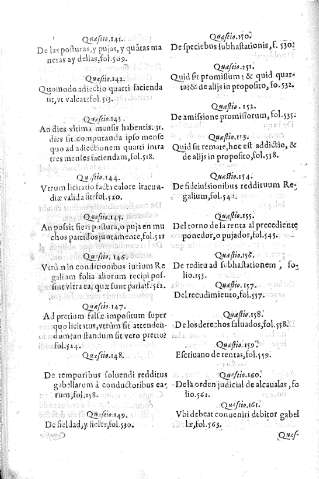 Quæstio.141.
De las posturas, y pujas, y quãtas ma
neras ay dellas, fol.509.
Quæstio.142.
Quomodo adiectio quarti facienda
sit, vt valeat. fol.513.
Quæstio.143.
An dies vltima mensis habentis.31.
dies sit computanda ipso mense
quo ad adiectionem quarti intra
tres menses faciendam, fol.518.
Quæstio.144.
Vtrum licitatio facta calore iracun
diæ valida sit fol.520.
Quæstio.145.
An possit fieri postura, o puja en mu
chos partidos juntamente, fol.521
Quæstio.146.
Vtrũ in conditionibus iurium Re
galium folia aliorum recipi pos
sint vltra ea, quæ sunt
Quæstio.147.
Ad pretium falsæ impositum super
quo licitatus, vtrùm sit attenden-
dum; an standum sit vero pretio?
fol.524.
Quæstio.148.
De temporibus soluendi redditus
gabellarum à conductoribus ea-
rum, fol.
Quæstio.149.
De fieldad, y fieles, fol.530.
Quæstio.150.
De speciebus subhastationis, f.530.
Quæstio.151.
Quid sit promissum; & quid quar-
tũ & de alijs in proposito, fo.532.
Quæstio.152.
De amissione promissorum, fol.535.
Quæstio.153.
Quid sit remate, hoc est addictio, &
de alijs in proposito, fol.538.
Quæstio.154.
De decissionibus reddituum Re-
galium, fol.542.
Quæstio.155.
Del torno de la renta al precedente
ponedor, o pujador, fol.545.
Quæstio.156.
De reditu ad subhastationem, fo-
lio.555.
Quæstio.157.
Del recudimiento, fol.557.
Quæstio.158.
De los derechos saluados, fol.558.
Quæstio.159.
Escriuano de rentas, fol.559.
Quæstio.160.
De la orden judicial de alcaualas, fo
lio.561.
Quæstio.161.
Vbi debeat conueniri debitor gabel
læ, fol.563.
Quæs-